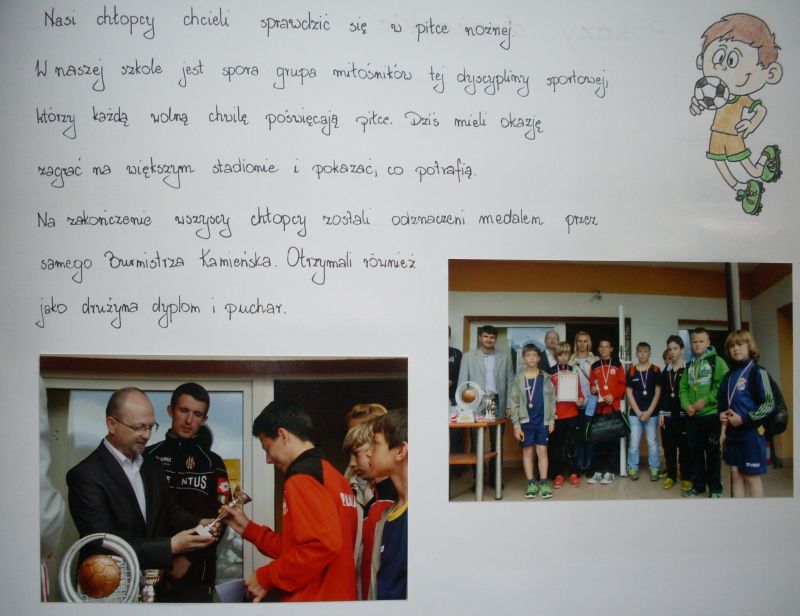 Nasi chłopcy chcieli sprawdzić się w piłce nożnej.
W naszej szkole jest spora grupa miłośników tej dyscypliny sportowej,
którzy każdą wolną chwilę poświęcają piłce. Dziś mieli okazję
zagrać na większym stadionie i pokazać, co potrafią.
Na zakończenie wszyscy chłopcy zostali odznaczeni medalem przez
samego Burmistrza Kamieńska. Otrzymali również
jako drużyna dyplom i puchar.